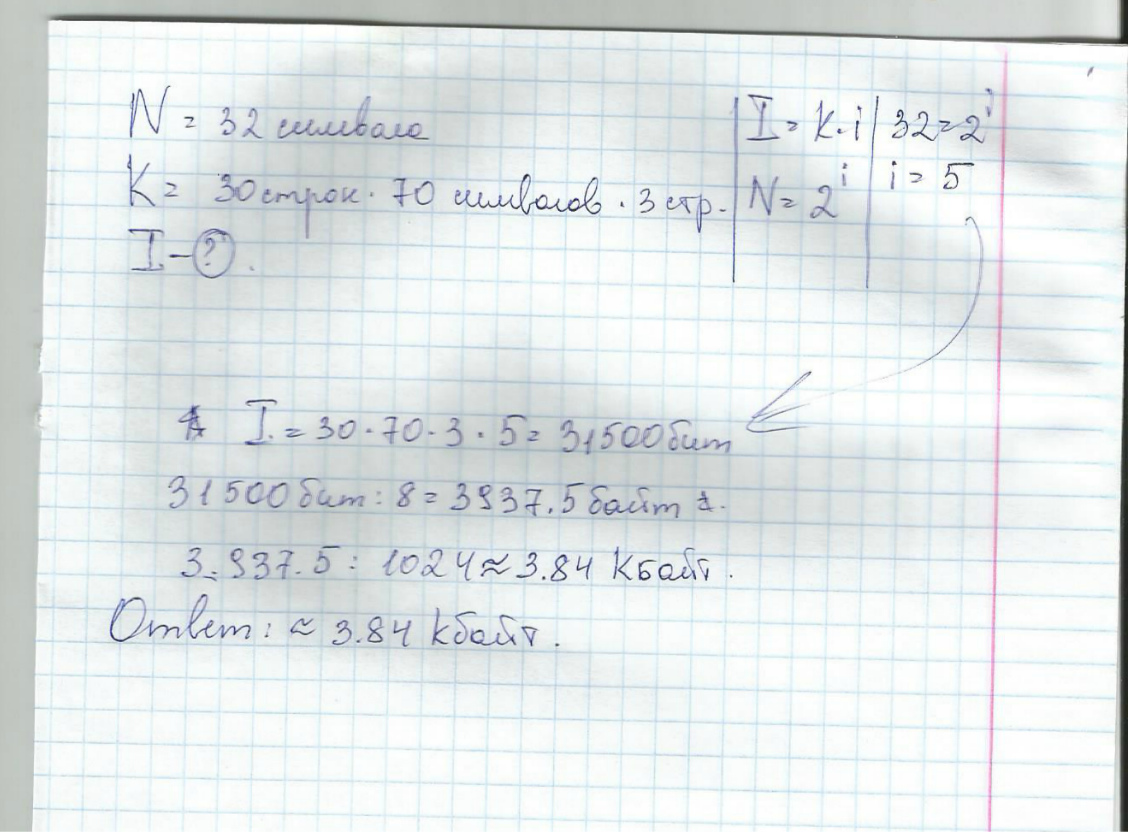 N = 32 символа
K = 30 строк · 70 символов · 3 стр.
I – ?.
I = K · i
N = 2^i
32 = 2^i
i = 5
I = 30 · 70 · 3 · 5 = 31500 бит
31500 бит : 8 = 3937.5 байт
3.937.5 : 1024 ≈ 3.84 Кбайт.
Ответ: ≈ 3.84 Кбайт.